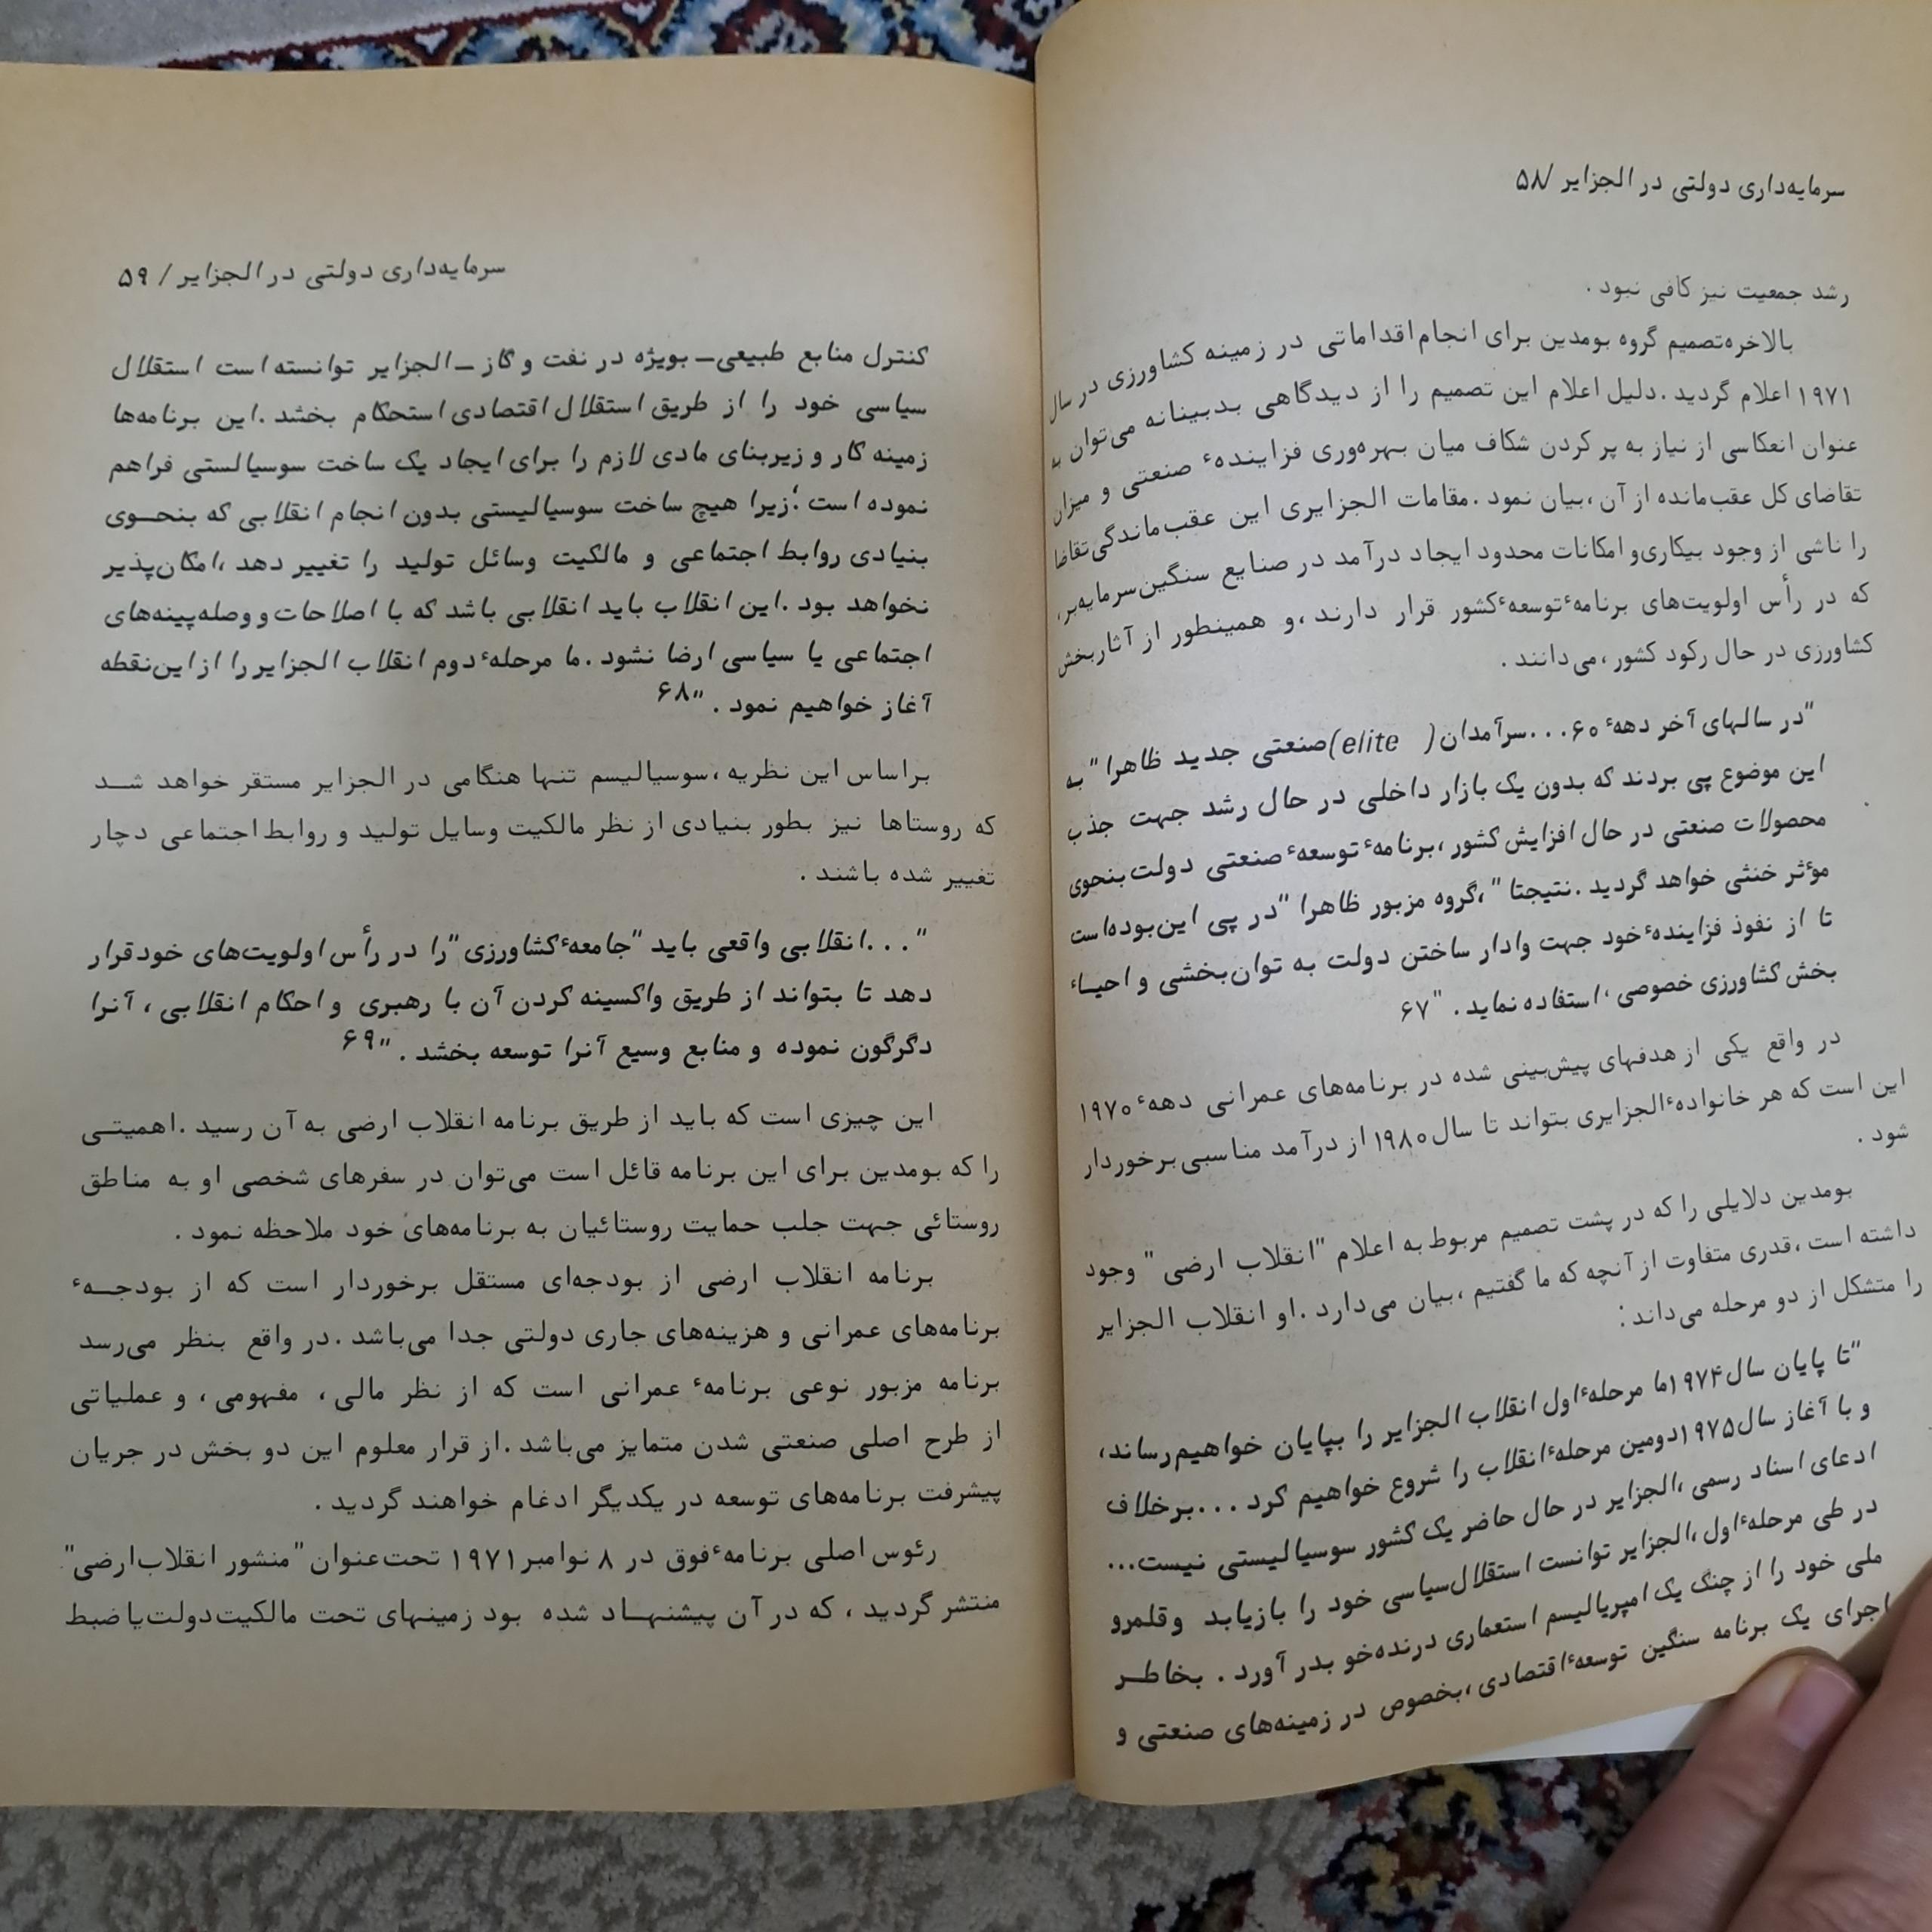 سرمایه‌داری دولتی در الجزایر /۵۸
رشد جمعیت نیز کافی نبود.
بالاخره تصمیم گروه بومدین برای انجام اقداماتی در زمینه کشاورزی در سال
۱۹۷۱ اعلام گردید. دلیل اعلام این تصمیم را از دیدگاهی بدبینانه می‌توان به
عنوان انعکاسی از نیاز به پر کردن شکاف میان بهره‌وری فزایندهٔ صنعتی و میزان
تقاضای کل عقب‌مانده از آن، بیان نمود. مقامات الجزایری این عقب‌ماندگی تقاضا
را ناشی از وجود بیکاری و امکانات محدود ایجاد درآمد در صنایع سنگین سرمایه‌بر،
که در رأس اولویت‌های برنامهٔ توسعهٔ کشور قرار دارند، و همینطور از آثار بخش
کشاورزی در حال رکود کشور، می‌دانند.
"در سالهای آخر دههٔ ۶۰...سرآمدان (elite) صنعتی جدید ظاهرا" به
این موضوع پی بردند که بدون یک بازار داخلی در حال رشد جهت جذب
محصولات صنعتی در حال افزایش کشور، برنامهٔ توسعهٔ صنعتی دولت بنحوی
مؤثر خنثی خواهد گردید. نتیجتا"، گروه مزبور ظاهرا "در پی این بوده‌است
تا از نفوذ فزایندهٔ خود جهت وادار ساختن دولت به توان‌بخشی و احیاء
بخش کشاورزی خصوصی، استفاده نماید." ۶۷
در واقع یکی از هدفهای پیش‌بینی شده در برنامه‌های عمرانی دههٔ ۱۹۷۰
این است که هر خانوادهٔ الجزایری بتواند تا سال ۱۹۸۰ از درآمد مناسبی برخوردار
شود.
بومدین دلایلی را که در پشت تصمیم مربوط به اعلام "انقلاب ارضی" وجود
داشته است، قدری متفاوت از آنچه که ما گفتیم، بیان می‌دارد. او انقلاب الجزایر
را متشکل از دو مرحله می‌داند:
"تا پایان سال ۱۹۷۴ ما مرحلهٔ اول انقلاب الجزایر را بپایان خواهیم رساند،
و با آغاز سال ۱۹۷۵ دومین مرحلهٔ انقلاب را شروع خواهیم کرد ...برخلاف
ادعای اسناد رسمی، الجزایر در حال حاضر یک کشور سوسیالیستی نیست...
در طی مرحلهٔ اول، الجزایر توانست استقلال سیاسی خود را بازیابد و قلمرو
ملی خود را از چنگ یک امپریالیسم استعماری درنده‌خو بدر آورد. بخاطر
اجرای یک برنامه سنگین توسعهٔ اقتصادی، بخصوص در زمینه‌های صنعتی و
سرمایه‌داری دولتی در الجزایر / ۵۹
کنترل منابع طبیعی ــ بویژه در نفت و گاز ــ الجزایر توانسته است استقلال
سیاسی خود را از طریق استقلال اقتصادی استحکام بخشد. این برنامه‌ها
زمینه کار و زیربنای مادی لازم را برای ایجاد یک ساخت سوسیالستی فراهم
نموده است؛ زیرا هیچ ساخت سوسیالیستی بدون انجام انقلابی که بنحـوی
بنیادی روابط اجتماعی و مالکیت وسائل تولید را تغییر دهد، امکان‌پذیر
نخواهد بود. این انقلاب باید انقلابی باشد که با اصلاحات و وصله‌پینه‌های
اجتماعی یا سیاسی ارضا نشود. ما مرحلهٔ دوم انقلاب الجزایر را از این نقطه
آغاز خواهیم نمود." ۶۸
براساس این نظریه، سوسیالیسم تنها هنگامی در الجزایر مستقر خواهد شـد
که روستاها نیز بطور بنیادی از نظر مالکیت وسایل تولید و روابط اجتماعی دچار
تغییر شده باشند.
"...انقلابی واقعی باید "جامعهٔ کشاورزی" را در رأس اولویت‌های خود قرار
دهد تا بتواند از طریق واکسینه کردن آن با رهبری و احکام انقلابی، آنرا
دگرگون نموده و منابع وسیع آنرا توسعه بخشد." ۶۹
این چیزی است که باید از طریق برنامه انقلاب ارضی به آن رسید. اهمیتـی
را که بومدین برای این برنامه قائل است می‌توان در سفرهای شخصی او به مناطق
روستائی جهت جلب حمایت روستائیان به برنامه‌های خود ملاحظه نمود.
برنامه انقلاب ارضی از بودجه‌ای مستقل برخوردار است که از بودجـهٔ
برنامه‌های عمرانی و هزینه‌های جاری دولتی جدا می‌باشد. در واقع بنظر می‌رسد
برنامه مزبور نوعی برنامهٔ عمرانی است که از نظر مالی، مفهومی، و عملیاتی
از طرح اصلی صنعتی شدن متمایز می‌باشد. از قرار معلوم این دو بخش در جریان
پیشرفت برنامه‌های توسعه در یکدیگر ادغام خواهند گردید.
رئوس اصلی برنامهٔ فوق در ۸ نوامبر ۱۹۷۱ تحت عنوان "منشور انقلاب ارضی"
منتشر گردید، که در آن پیشنهـاد شده بود زمینهای تحت مالکیت دولت یا ضبط